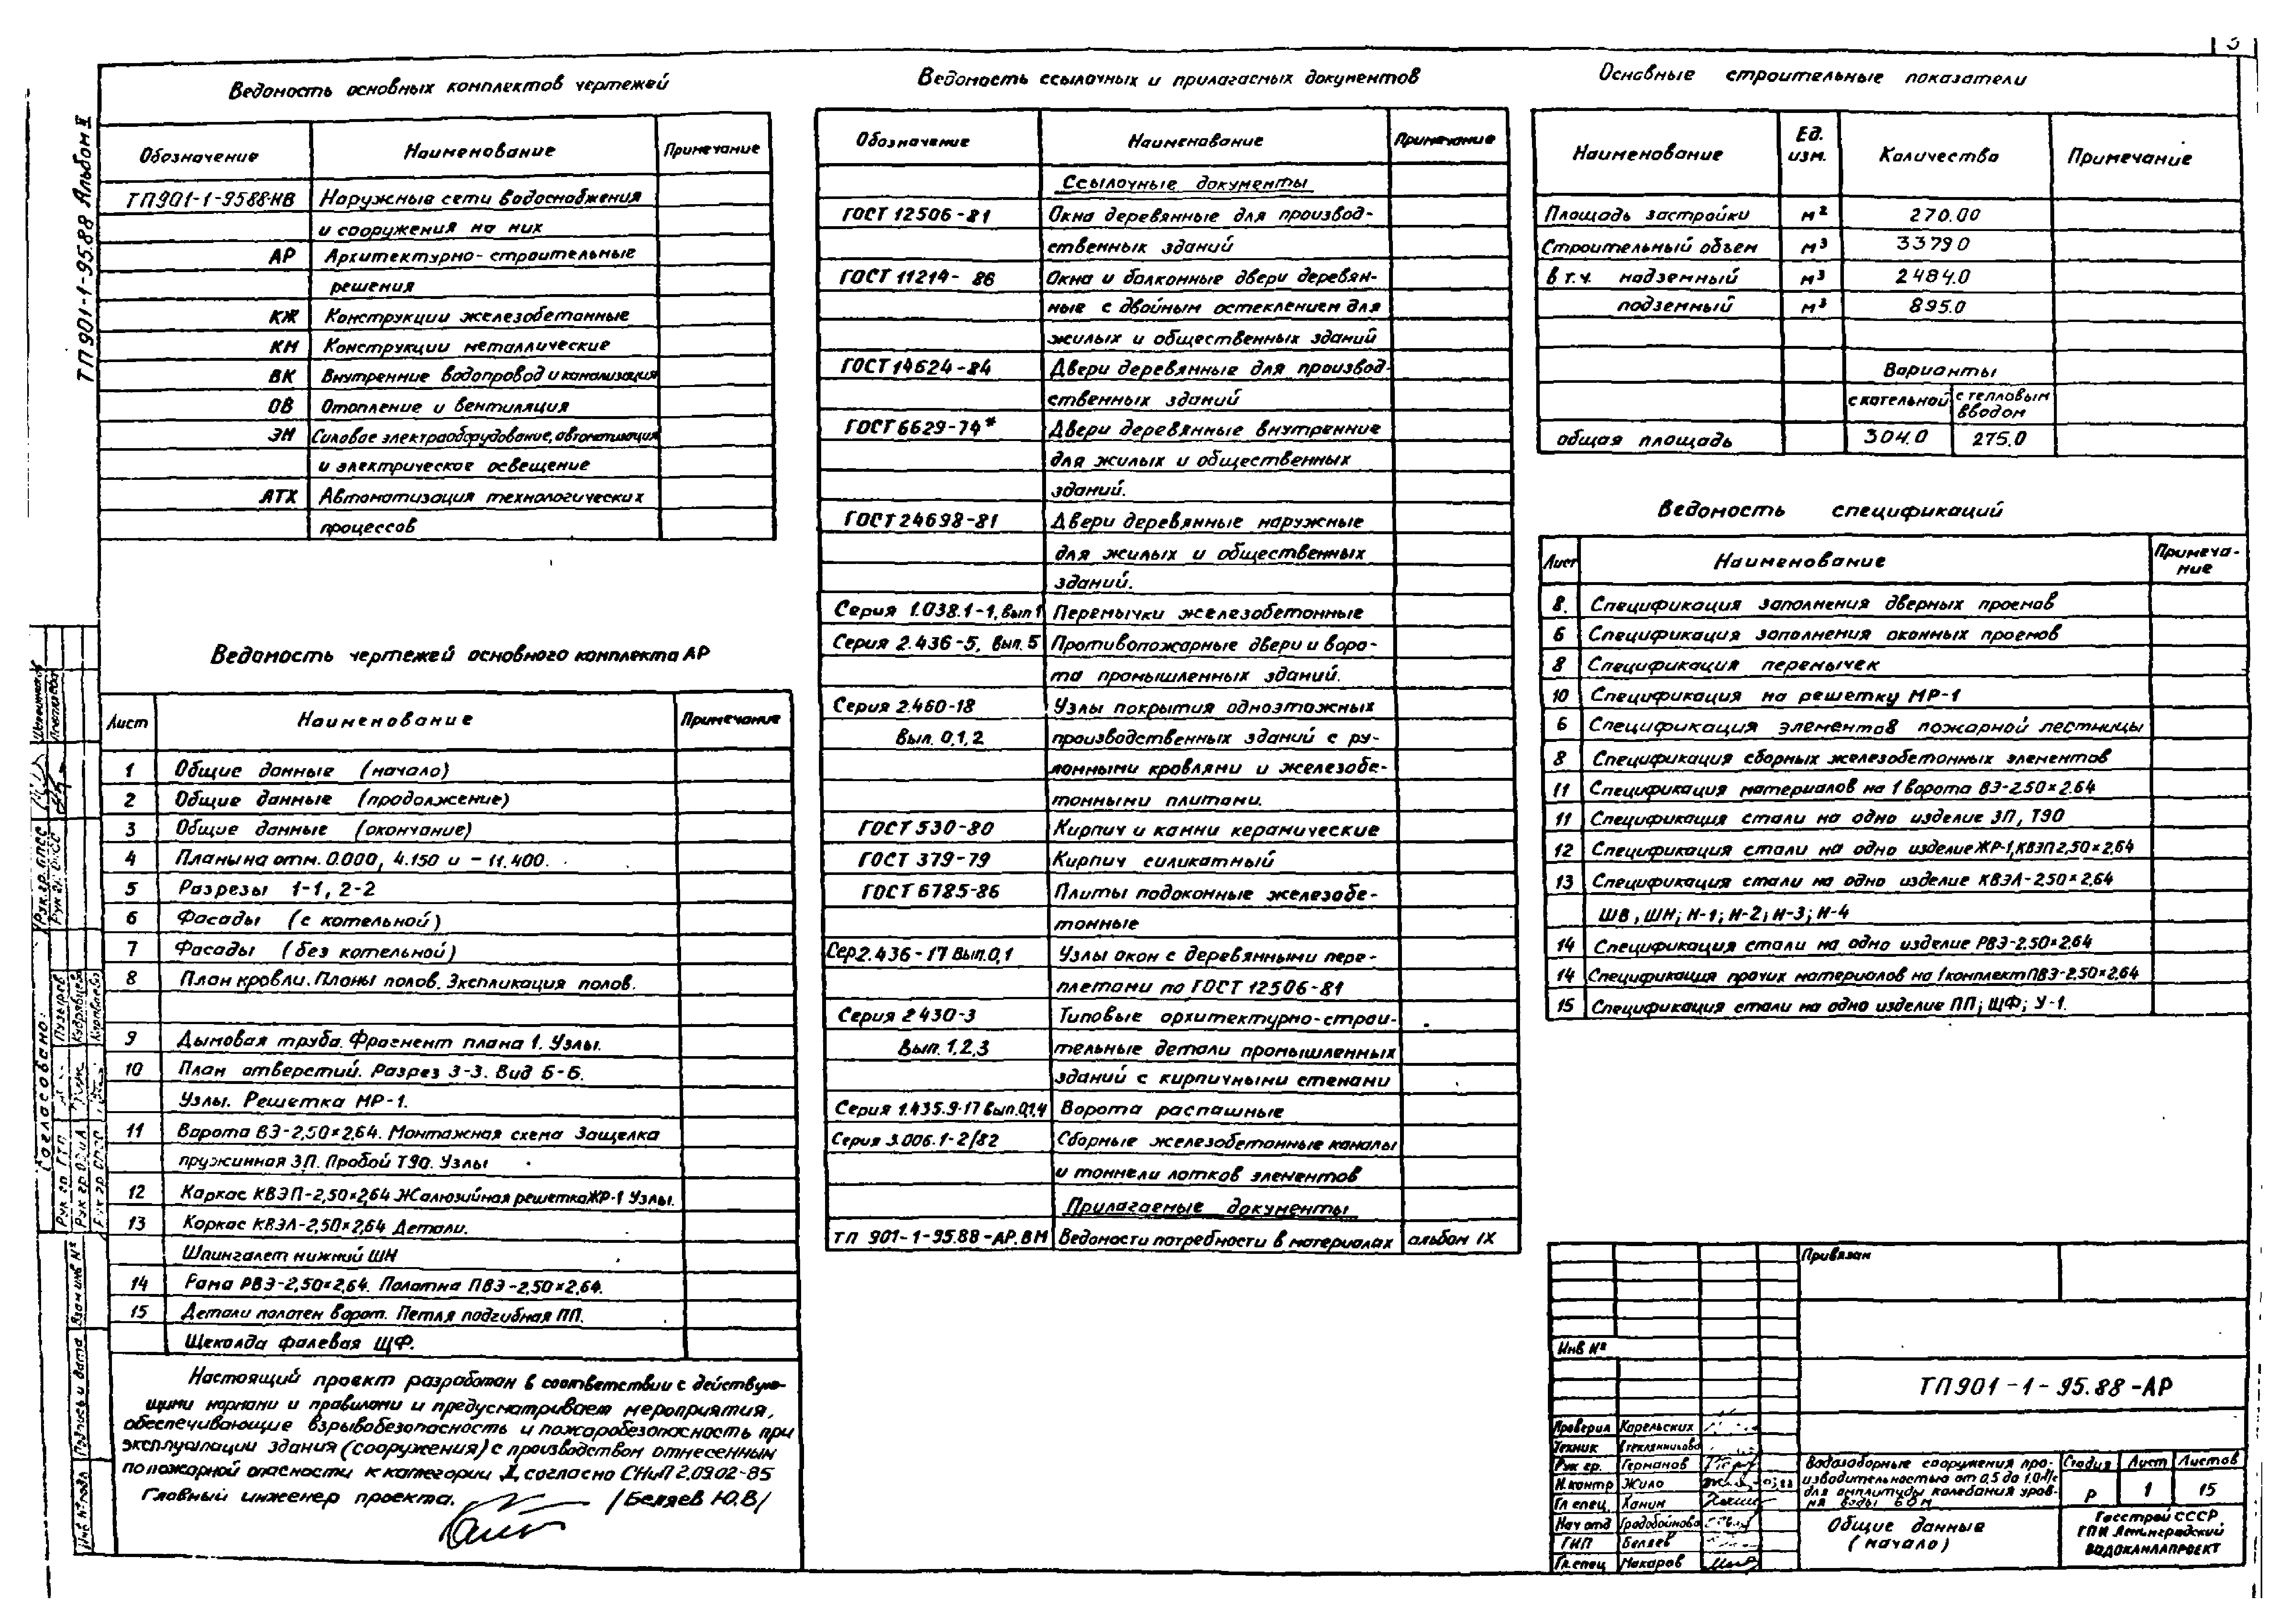 Ведомость основных комплектов чертежей
Обозначение Наименование Примечание
ТП901-1-95.88-НВ Наружные сети водоснабжения
и сооружения на них
АР Архитектурно-строительные
решения
КЖ Конструкции железобетонные
КМ Конструкции металлические
ВК Внутренние водопровод и канализация
ОВ Отопление и вентиляция
ЭМ Силовое электрооборудование, автоматизация
и электрическое освещение
АТХ Автоматизация технологических
процессов
ТП901-1-95.88 Альбом II
Ведомость чертежей основного комплекта АР
Лист Наименование Примечание
1 Общие данные (начало)
2 Общие данные (продолжение)
3 Общие данные (окончание)
4 Планы на отм. 0.000, 4.150 и -11.400.
5 Разрезы 1-1, 2-2
6 Фасады (с котельной)
7 Фасады (без котельной)
8 План кровли. Планы полов. Экспликация полов.
9 Дымовая труба. Фрагмент плана 1. Узлы.
10 План отверстий. Разрез 3-3. Вид Б-Б.
Узлы. Решетка МР-1.
11 Ворота ВЭ-2,50×2,64. Монтажная схема Защелка
пружинная ЗП. Пробой Т90. Узлы
12 Каркас КВЭП-2,50×2,64 Жалюзийная решетка ЖР-1 Узлы.
13 Каркас КВЭЛ-2,50×2,64 Детали.
Шпингалет нижний ШН
14 Рама РВЭ-2,50×2,64. Полотна ПВЭ-2,50×2,64.
15 Детали полотен ворот. Петля подгибная ПП.
Щеколда фалевая ЩФ.
Настоящий проект разработан в соответствии с действую-
щими нормами и правилами и предусматривает мероприятия,
обеспечивающие взрывобезопасность и пожаробезопасность при
эксплуатации здания (сооружения) с производством отнесенным
по пожарной опасности к категории Д, согласно СНиП 2.09.02-85
Главный инженер проекта. /Беляев Ю.В/
Ведомость ссылочных и прилагаемых документов
Обозначение Наименование Примечание
Ссылочные документы
ГОСТ 12506-81 Окна деревянные для производ-
ственных зданий
ГОСТ 11214-86 Окна и балконные двери деревян-
ные с двойным остеклением для
жилых и общественных зданий
ГОСТ 14624-84 Двери деревянные для производ-
ственных зданий
ГОСТ 6629-74* Двери деревянные внутренние
для жилых и общественных
зданий.
ГОСТ 24698-81 Двери деревянные наружные
для жилых и общественных
зданий.
Серия 1.038.1-1, вып 1 Перемычки железобетонные
Серия 2.436-5, вып. 5 Противопожарные двери и воро-
та промышленных зданий.
Серия 2.460-18 Узлы покрытия одноэтажных
Вып. 0,1,2 производственных зданий с ру-
лонными кровлями и железобе-
тонными плитами.
ГОСТ 530-80 Кирпич и камни керамические
ГОСТ 379-79 Кирпич силикатный
ГОСТ 6785-86 Плиты подоконные железобе-
тонные
Сер 2.436-17 Вып. 0,1 Узлы окон с деревянными пере-
плетами по ГОСТ 12506-81
Серия 2 430-3 Типовые архитектурно-строи-
Вып. 1,2,3 тельные детали промышленных
зданий с кирпичными стенами
Серия 1.435.9-17 Вып. 0,1,4 Ворота распашные
Серия 3.006.1-2/82 Сборные железобетонные каналы
и тоннели лотков элементов
Прилагаемые документы
ТП 901-1-95.88-АР.ВМ Ведомости потребности в материалах альбом IX
Основные строительные показатели
Наименование Ед. изм. Количество Примечание
Площадь застройки м² 270.00
Строительный объем м³ 3379.0
в т.ч. надземный м³ 2484.0
подземный м³ 895.0
Варианты
с котельной с тепловым вводом
общая площадь 304.0 275.0
Ведомость спецификаций
Лист Наименование Примеча-
ние
8. Спецификация заполнения дверных проемов
6 Спецификация заполнения оконных проемов
8 Спецификация перемычек
10 Спецификация на решетку МР-1
6 Спецификация элементов пожарной лестницы
8 Спецификация сборных железобетонных элементов
11 Спецификация материалов на 1 ворота ВЭ-2.50×2.64
11 Спецификация стали на одно изделие ЗП, Т90
12 Спецификация стали на одно изделие ЖР-1, КВЭП 2,50×2,64
13 Спецификация стали на одно изделие КВЭЛ-2,50×2,64
ШВ, ШН; Н-1; Н-2; Н-3; Н-4
14 Спецификация стали на одно изделие РВЭ-2,50×2,64
14 Спецификация прочих материалов на 1 комплект ПВЭ-2,50×2,64
15 Спецификация стали на одно изделие ПП; ЩФ; У-1.
Привязан
Инв №
ТП901-1-95.88-АР
Проверил Карельских
Техник
Рук гр. Германов
Н.контр Жило
Гл спец Ханин
Нач отд Гродобойнова
ГИП Беляев
Гл.спец Макаров
Водозаборные сооружения про-
изводительностью от 0,5 до 1.0 м³/с
для амплитуды колебания уров-
ня воды 6.0 м
Стадия Лист Листов
Р 1 15
Общие данные
(начало)
Госстрой СССР
ГПИ Ленинградский
ВОДОКАНАЛПРОЕКТ
Согласовано:
Взам инв №
Подпись и дата
Инв № подл